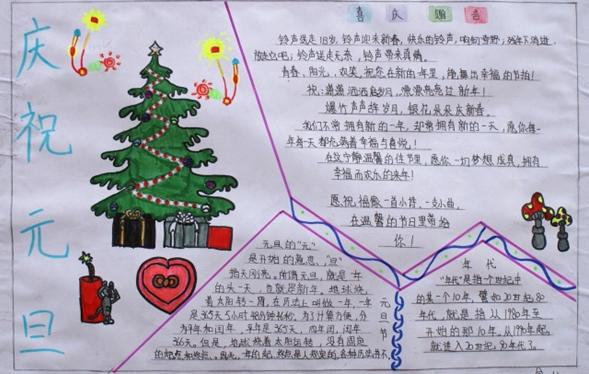 庆祝元旦
喜庆
铃声送走旧岁,铃声迎来新春,快乐的铃声,响彻
铃声送走
青春、阳光、欢笑,祝您在新的一年里,
幸福的节拍!
祝:潇潇洒洒
新年!
爆竹声声辞岁月,银花朵朵庆新春。
我们不常拥有新的一年,却常拥有新的一天,愿你每一
年每一天都充满着幸福与喜悦!
在这宁静温馨的佳节里,愿你一切梦想成真,拥有
幸福而欢乐的来年!
愿祝福像一首小诗,一支小曲,
在温馨的节日里
你!
元旦的“元”
是开始的意思,“旦”
指天刚亮。所谓元旦,就是一年
的头一天,也就是新年。地球绕
着太阳转一圈,在历法上叫做一年,一年
是365天5小时48分钟46秒。为了计算方便,分
为平年和闰年,平年是365天,四年一闰,闰年
366天。但是,地球绕着太阳运转,没有固定
的起点和终点。
元旦节
年代
“年代”是指一个世纪中
的某一个10年,譬如20世纪80
年代,就是指从1980年
开始的那10年。从1980年起,
就进入20世纪80年代了。